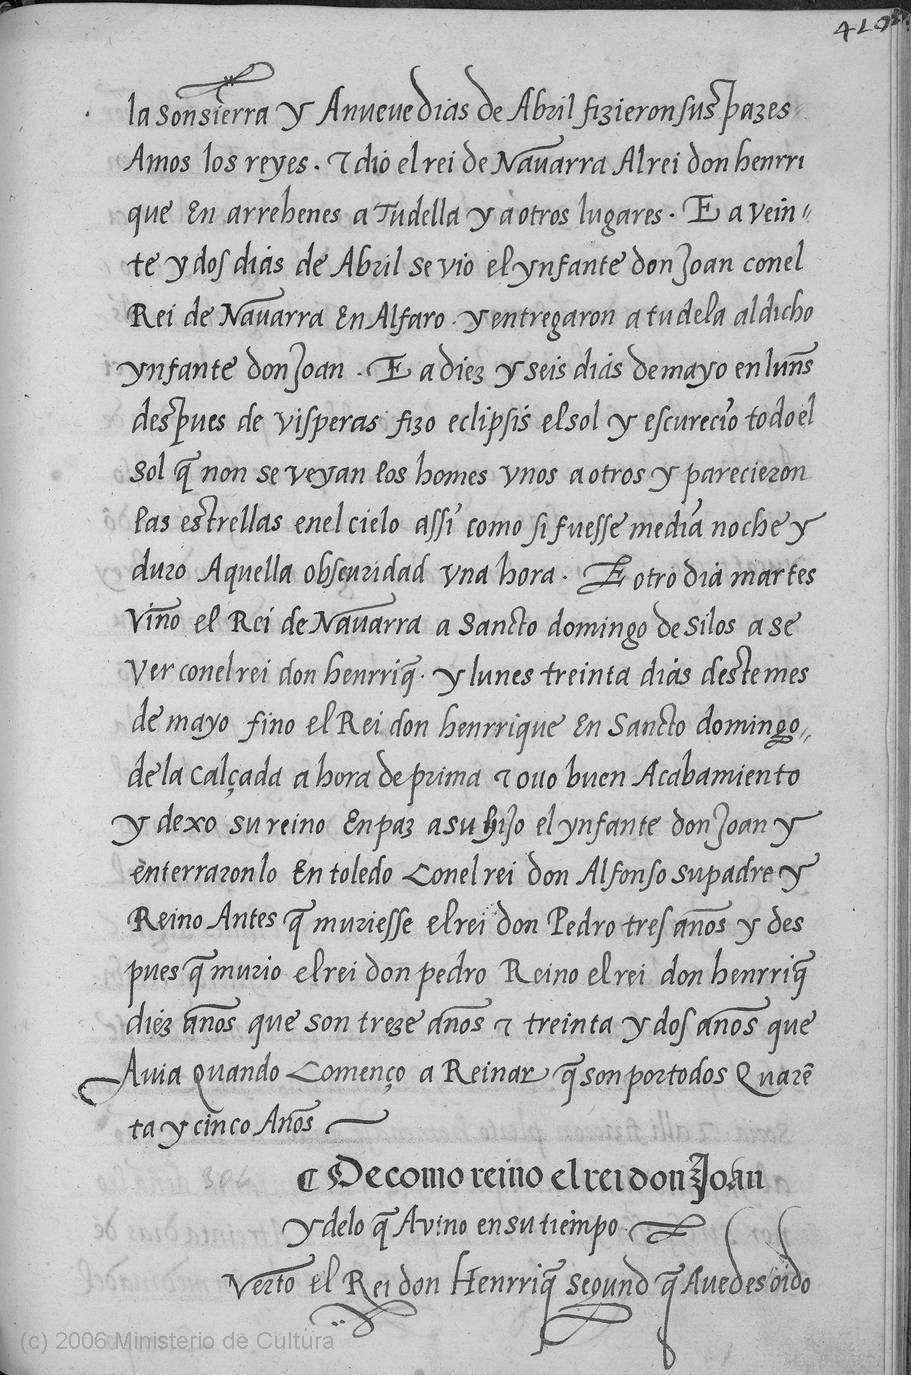 410
la sonsierra y Anueue dias de Abril fizieron sus pazes
Amos los reyes. & dio el rei de Nauarra Al rei don henrri
que En arrehenes a Tudella y a otros lugares. E a vein〃
te y dos dias de Abril se vio el ynfante don Joan con el
Rei de Nauarra En Alfaro. y entregaron a tudela al dicho
ynfante don Joan. E a diez y seis dias de mayo en luñs
despues de visperas fizo eclipsis el sol y escurecio todo el
sol q̃ non se veyan los homes vnos a otros y parecieron
las estrellas en el cielo assi como si fuesse media noche y
duro Aquella obscuridad vna hora. E otro dia martes
viño el Rei de Nauarra a Sancto domingo de Silos a se
Ver con el rei don henrriq̃. y lunes treinta dias deste mes
de mayo fino el Rei don henrrique En Sancto domingo〃
de la calçada a hora de prima & ouo buen Acabamiento
y dexo su reino En paz a su hijo el ynfante don Joan y
enterraronlo En toledo Con el rei don Alfonso su padre y
Reino Antes q̃ muriesse el rei don Pedro tres años y des
pues q̃ murio el rei don pedro Reino el rei don henrriq̃
diez años que son treze años & treinta y dos años que
Auia Quando Començo a Reinar q̃ son por todos Quarẽ
ta y cinco Años
¶ De como reino el rei don Joan
y de lo q̃ Avino en su tiempo.
Verto el Rei don Henrriq̃ segund q̃ Auedes oido
(c) 2006 Ministerio de Cultura